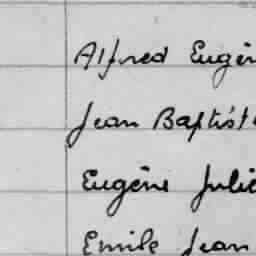 Alfred Eugèn
Jean Baptist
Eugène Julie
Emile Jean